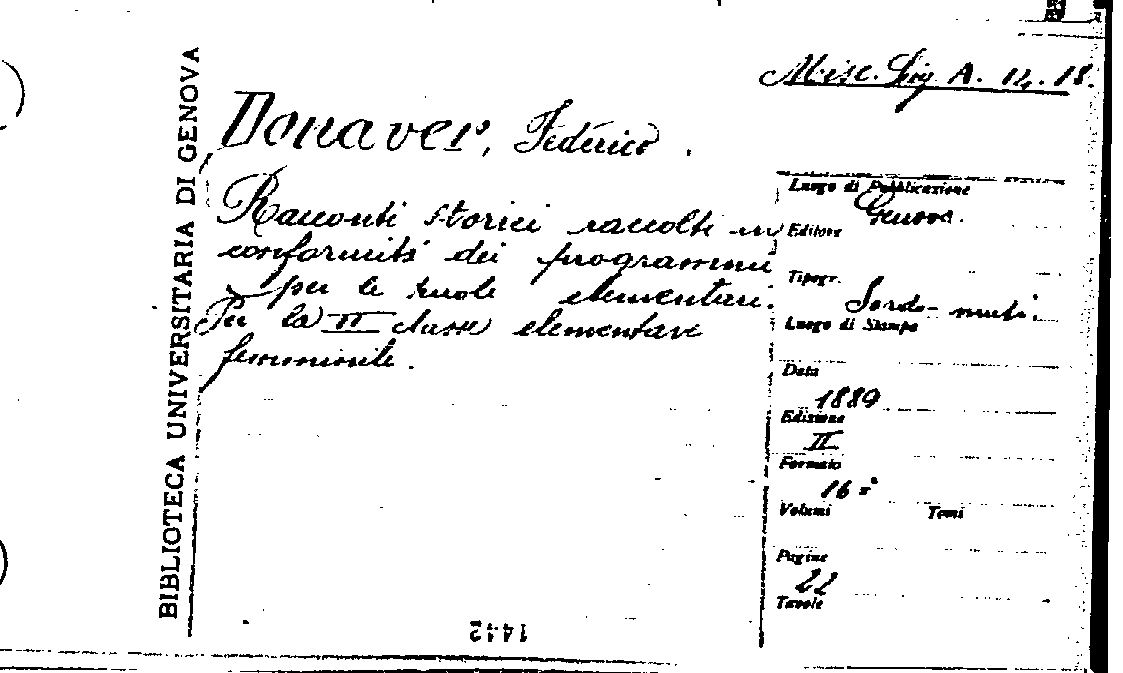 Misc. Lig A. 12. 18.
BIBLIOTECA UNIVERSITARIA DI GENOVA
Donaver, Federico.
Racconti storici raccolti in
conformità dei programmi
per le scuole elementari.
Per la II classe elementare
femminile.
Luogo di Pubblicazione
Genova.
Editore
Tipogr.
Sordo-muti.
Luogo di Stampa
Data
1889
Edizione
II
Formato
16º
Volumi Tomi
Pagine
22
Tavole
1442